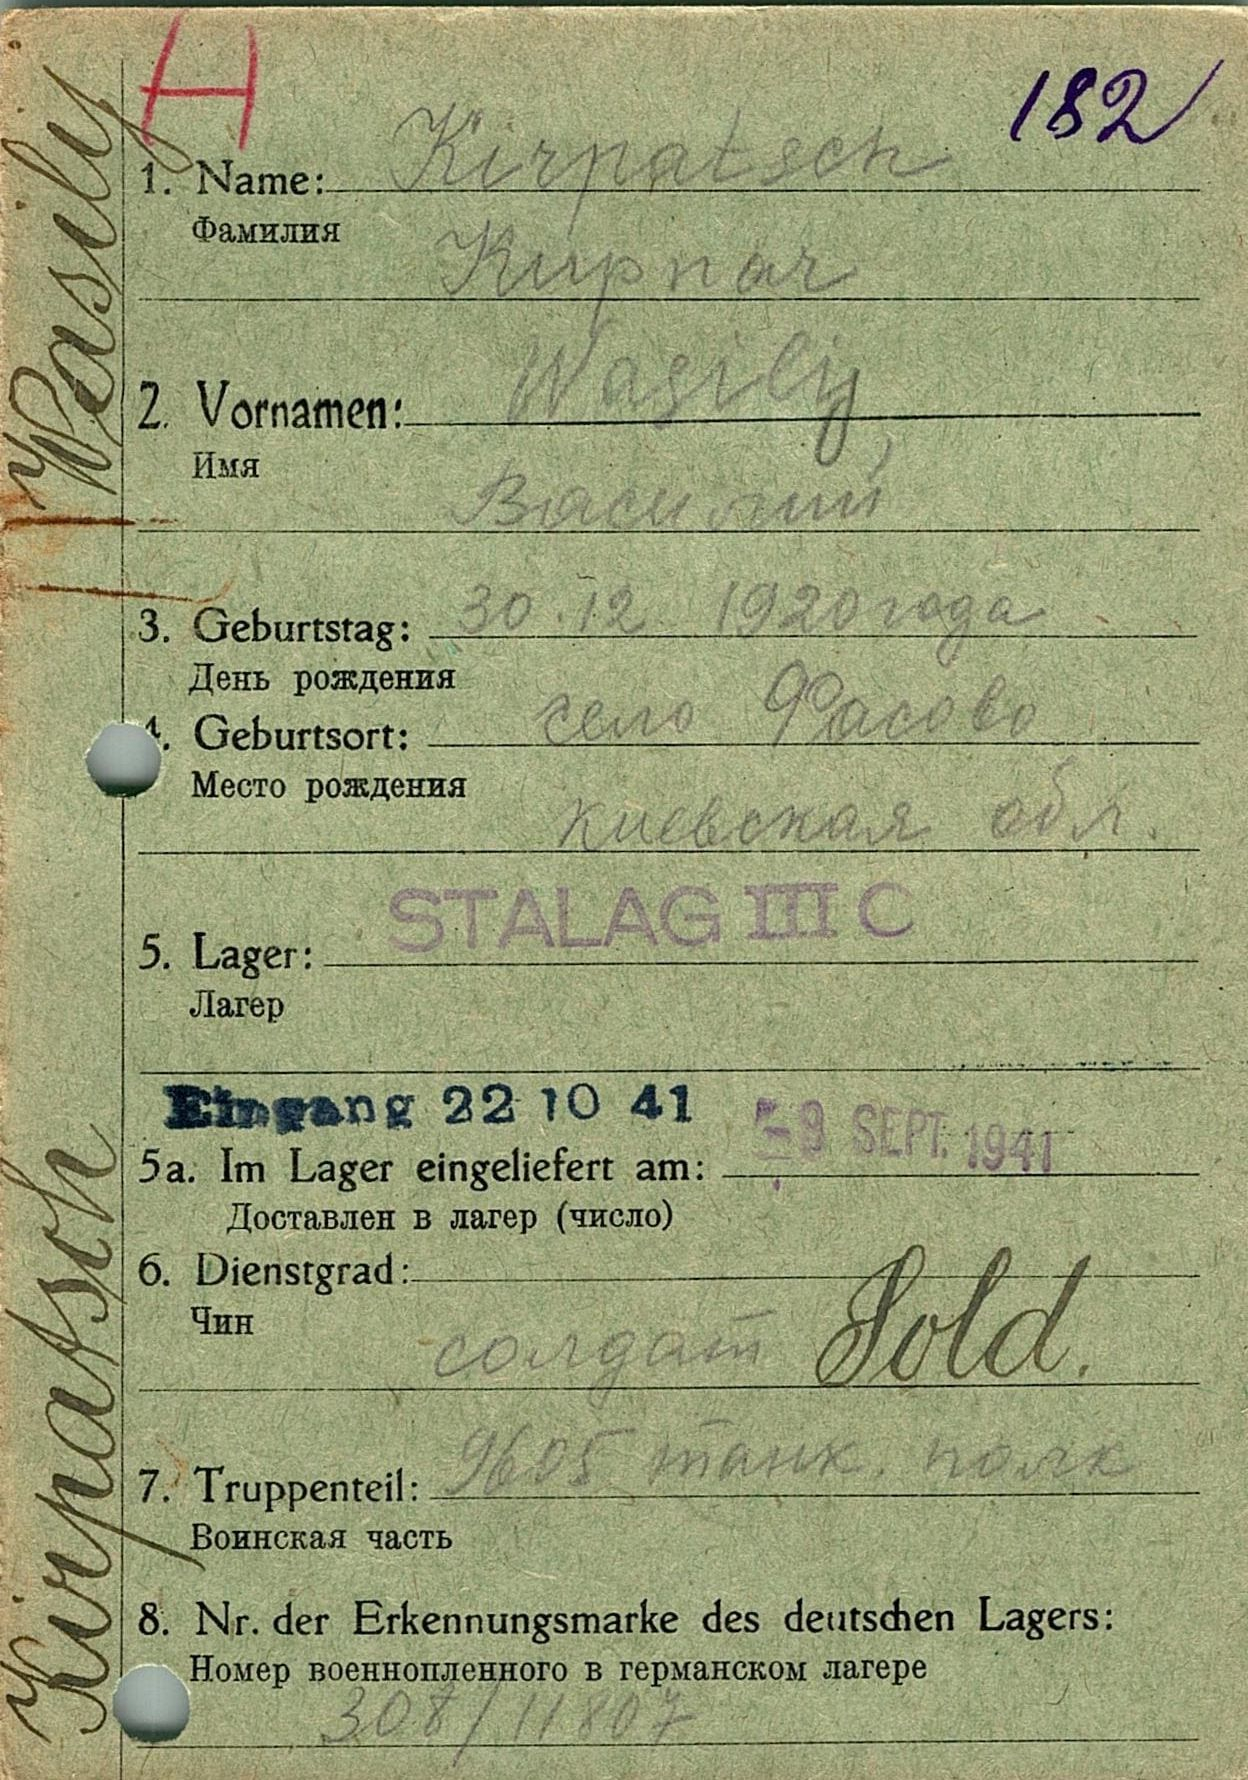 H
182
Kirpatsch Wasilij
1. Name: Kirpatsch
Фамилия
Кирпач
2. Vornamen: Wasilij,
Имя
Василий
3. Geburtstag: 30.12 1920 года
День рождения
4. Geburtsort: село Фасово
Место рождения
киевская обл.
STALAG III C
5. Lager:
Лагер
Eingang 22 10 41
-9 SEPT. 1941
5a. Im Lager eingeliefert am:
Доставлен в лагер (число)
6. Dienstgrad:
Чин
солдат Sold.
7. Truppenteil: 9605 танк. полк
Воинская часть
8. Nr. der Erkennungsmarke des deutschen Lagers:
Номер военнопленного в германском лагере
308/11807